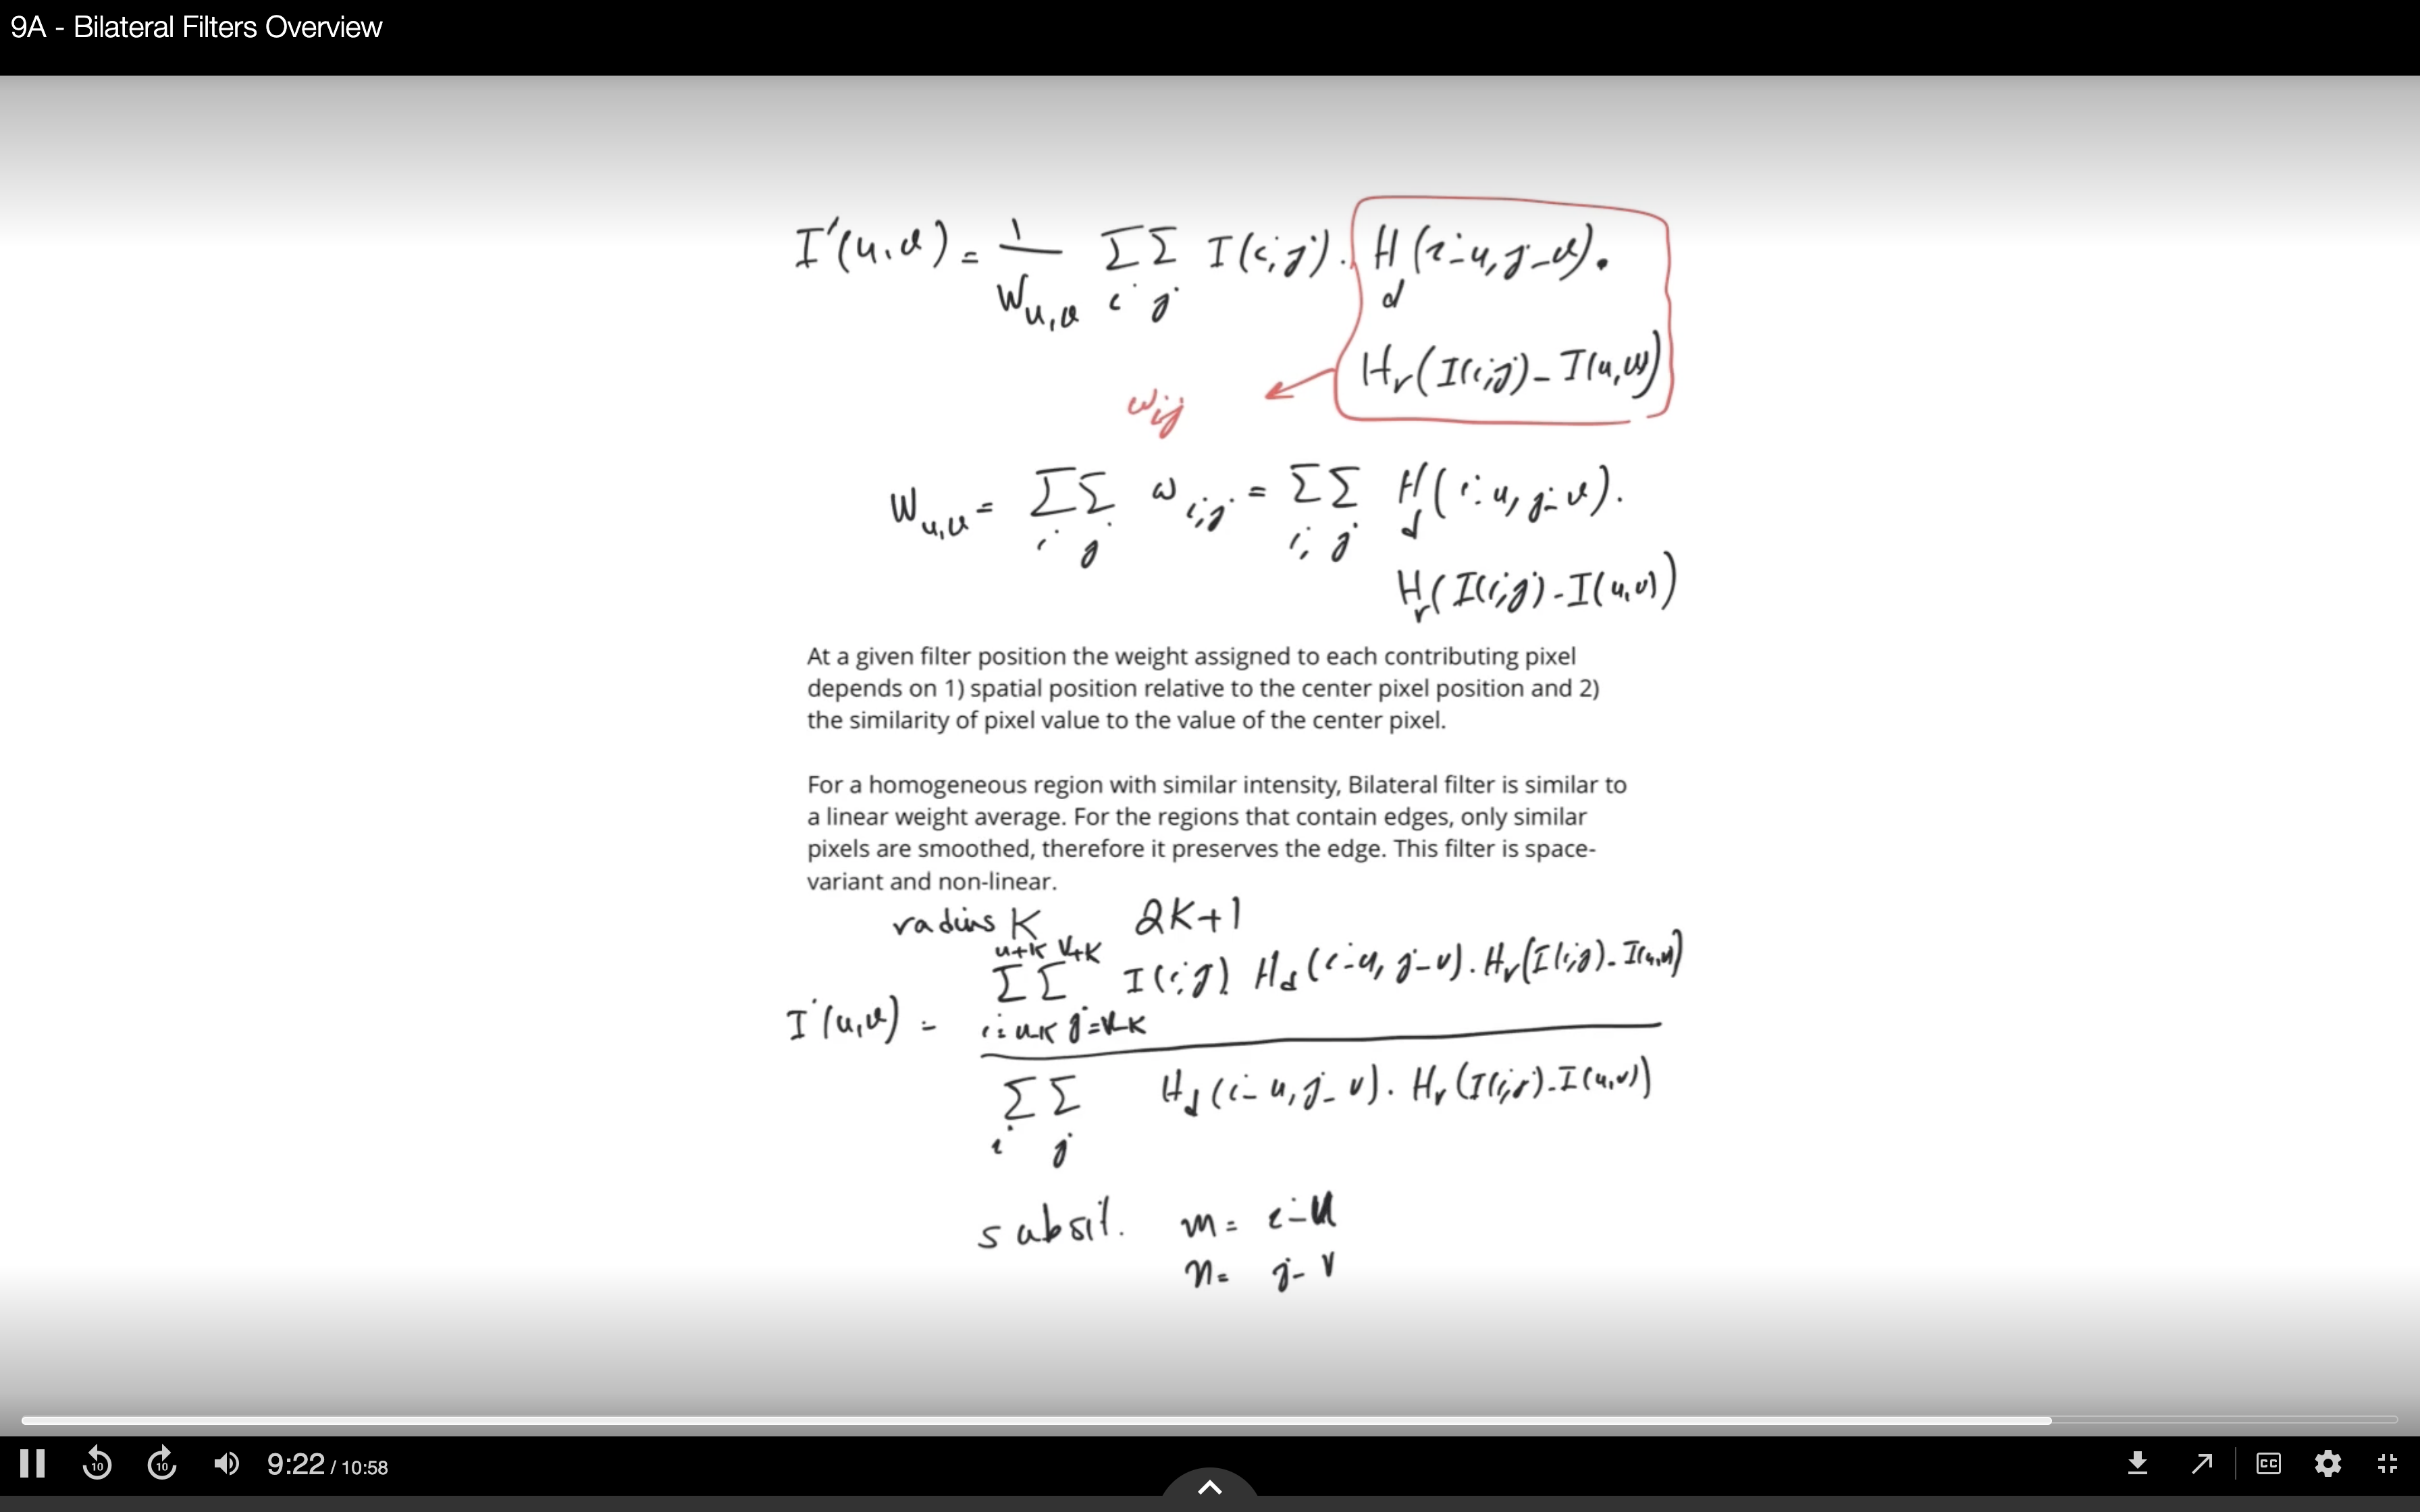 9A - Bilateral Filters Overview
I'(u,v) = 1 / W_{u,v} Σ_i Σ_j I(i,j) · H_d(i-u, j-v) ·
H_r(I(i,j) - I(u,v))
w_{ij}
W_{u,v} = Σ_i Σ_j w_{i,j} = Σ_i, Σ_j H_d(i-u, j-v) ·
H_r(I(i,j) - I(u,v))
At a given filter position the weight assigned to each contributing pixel
depends on 1) spatial position relative to the center pixel position and 2)
the similarity of pixel value to the value of the center pixel.
For a homogeneous region with similar intensity, Bilateral filter is similar to
a linear weight average. For the regions that contain edges, only similar
pixels are smoothed, therefore it preserves the edge. This filter is space-
variant and non-linear.
radius K 2K+1
u+K v+K
ΣΣ I(i,j) H_d(i-u, j-v) · H_r(I(i,j) - I(u,v))
I'(u,v) = i=u-K j=v-K
Σ_i Σ_j H_d(i-u, j-v) · H_r(I(i,j) - I(u,v))
subsit. m = i-u
n = j-v
10 10 9:22 / 10:58 CC